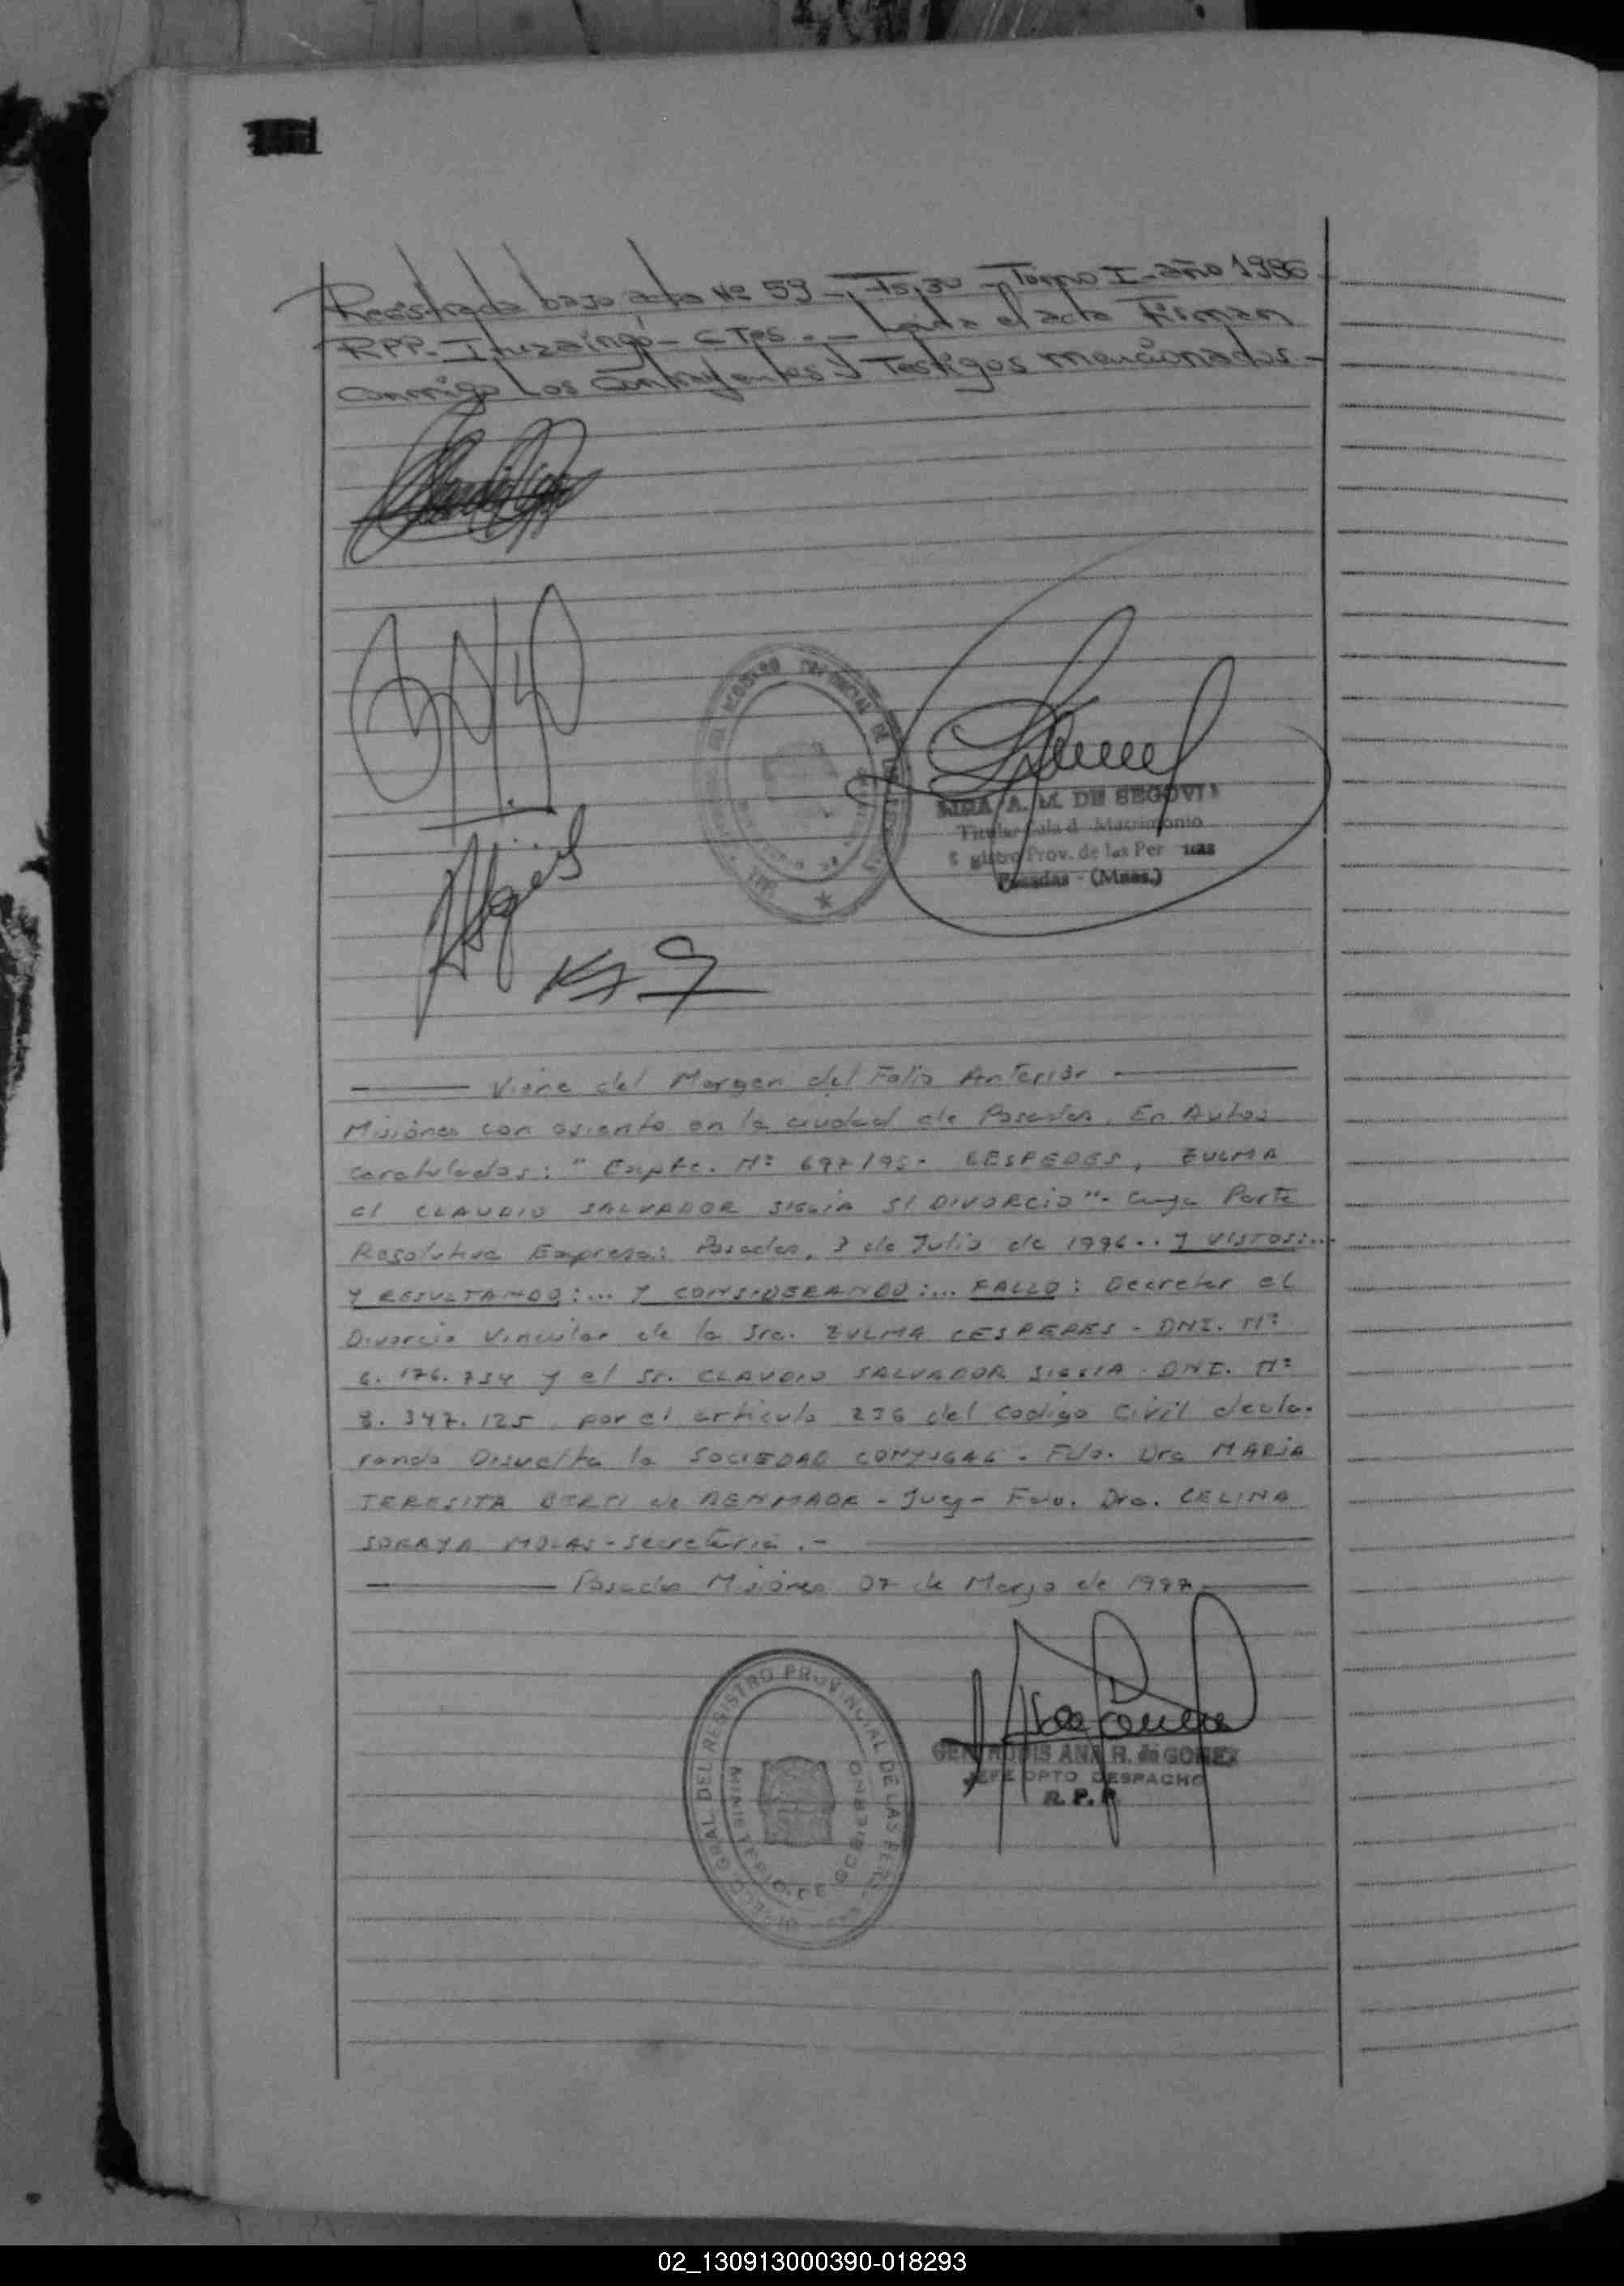 Registrada bajo acta Nº 59 - Fs, 30 - Tomo I - año 1986
RPP - Ituzaingó - CTES. - Leída el acta Firman
conmigo Los Contrayentes y Testigos mencionados. -
A. M. DE SEGOVIA
Titular Sala d Matrimonio
gistro Prov. de las Per nas
Posadas - (Mnes.)
Viene del Margen del Folio Anterior
Misiones con asiento en la ciudad de Posadas. En Autos
caratulados: " Expte. Nº 697/95- CESPEDES, ZULMA
c/ CLAUDIO SALVADOR S/ DIVORCIO"- Cuya Parte
Resolutiva Expresa: Posadas, 3 de Julio de 1996.. Y VISTOS:...
Y RESULTANDO:... Y CONSIDERANDO:... FALLO: Decretar el
Divorcio Vincular de la Sra. ZULMA CESPEDES - DNI. Nº
6. 176. 734 y el Sr. CLAUDIO SALVADOR DNI. Nº
8. 347. 125, por el articulo 236 del codigo civil decla-
rando Disuelta la SOCIEDAD CONYUGAL - Fdo. Dra MARIA
TERESITA de - Juez - Fdo. Dra. CELINA
SORAYA MOLAS - Secretaria . -
Posadas Misiones 07 de Marzo de 1997
DIRECC. GRAL DEL REGISTRO PROVINCIAL DE LAS PERS.
MINISTERIO DE GOBIERNO
GERTRUDIS ANA R. de GOMEZ
JEFE DPTO DESPACHO
R. P. P.
02_130913000390-018293